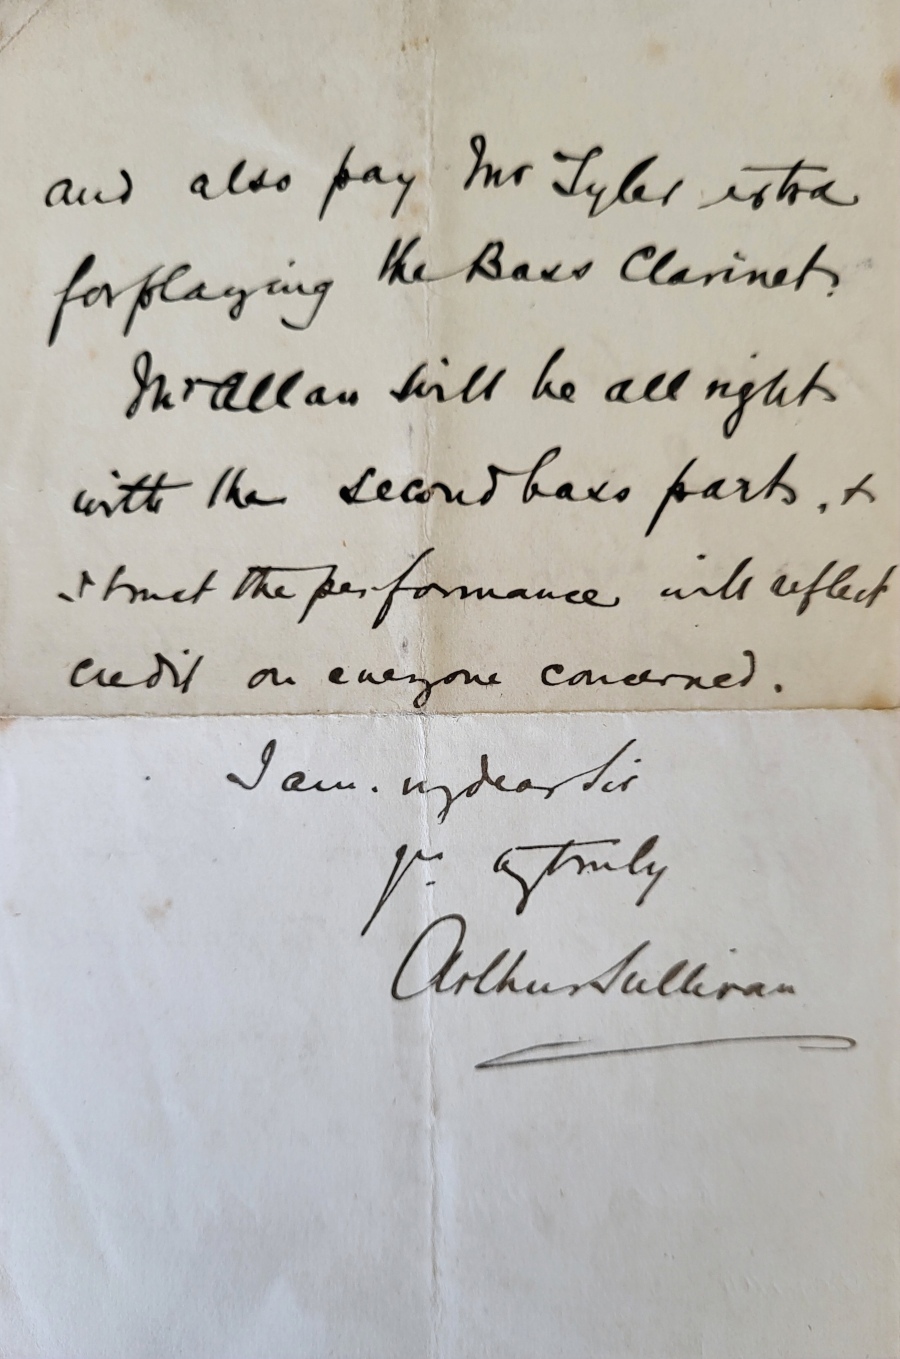 and also pay Mr Tyler extra
for playing the Bass Clarinet.
Mr Allan will be all right
with the second bass parts, &
I trust the performance will reflect
credit on everyone concerned.
I am. my dear Sir
yrs truly
Arthur Sullivan